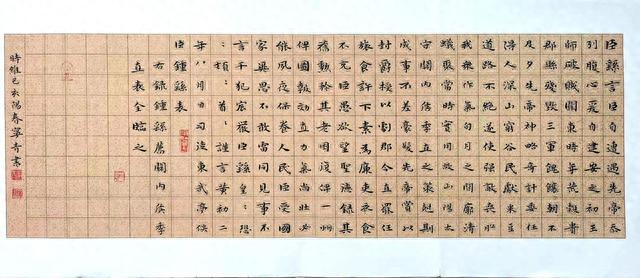 臣繇言臣自遭遇先帝忝
列腹心爰自建安之初王
師破賊關東時年荒穀貴
郡縣殘毀三軍餽饟朝不
及夕先帝神略奇計委任
得人深山窮谷民獻米豆
道路不絕遂使強敵喪膽
我衆作氣旬月之間廓清
蟻聚當時實用故山陽太
守關內侯季直之策剋期
成事不差豪髮先帝賞以
封爵授以劇郡今直罷任
旅食許下素為廉吏衣食
不充臣愚欲望聖德錄其
舊勳矜其老困復俾一州
俾圖報效直力氣尚壯必
能夙夜保養人民臣受國
家異恩不敢雷同見事不
言干犯宸嚴臣繇皇:恐
:頓:首:謹言黃初二
年八月日司徒東武亭侯
臣鍾繇表
右錄鍾繇薦關內侯季
直表全臨之
時維乙巳秋陽春寧青書